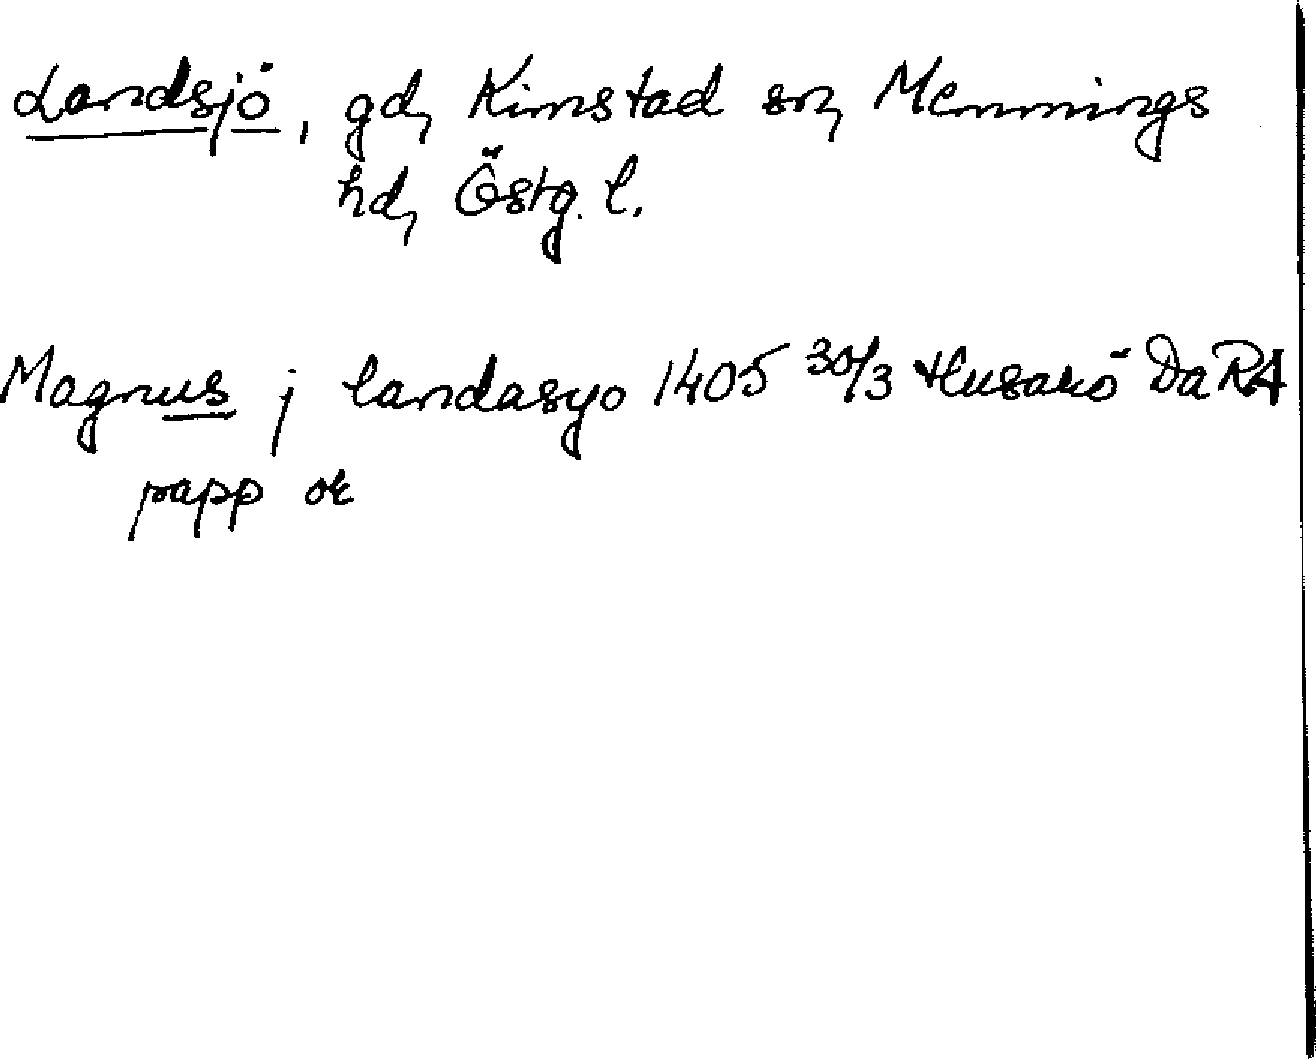 Landsjö, gd, Kimstad sn, Memmings
hd, Östg. l.
Magnus j landasyo 1405 30/3 Husarö DaRA
papp or